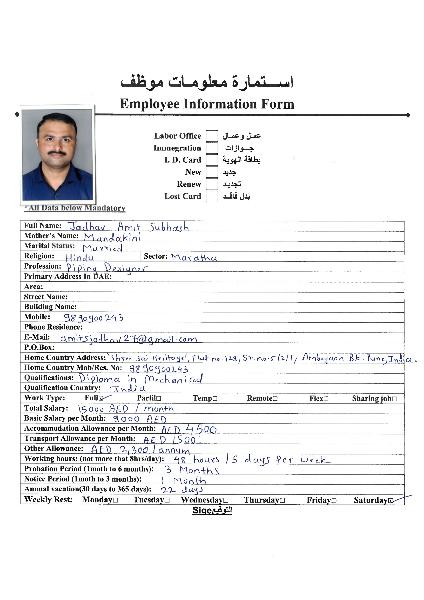 استمارة معلومات موظف
Employee Information Form
Labor Office عمل وعمال
Immegration جوازات
I. D. Card بطاقة الهوية
New جديد
Renew تجديد
Lost Card بدل فاقد
*All Data below Mandatory
Full Name: Jadhav Amit Subhash
Mother's Name: Mandakini
Marital Status: Married
Religion: Hindu Sector: Maratha
Profession: Piping Designer
Primary Address In UAE:
Area:
Street Name:
Building Name:
Mobile: 9890900243
Phone Residence:
E-Mail: amitsjadhav27@gmail.com
P.O.Box:
Home Country Address: Shree Sai Heritage, Flat no. 128, Sr. no. 5/2/1, Ambegaon Bk. Pune, India.
Home Country Mob/Res. No: 9890900243
Qualifications: Diploma in Mechanical
Qualification Country: India
Work Type: Full☑ Partil□ Temp□ Remote□ Flex□ Sharing job□
Total Salary: 15000 AED / month
Basic Salary per Month: 9000 AED
Accommodation Allowance per Month: AED 4500
Transport Allowance per Month: AED 1500
Other Allowance: AED 2,300 / annum
Working hours: (not more that 8hrs/day): 48 hours / 5 days per week
Probation Period (1month to 6 months): 3 Months
Notice Period (1month to 3 months): 1 Month
Annual vacation(30 days to 365 days): 22 days
Weekly Rest: Monday□ Tuesday□ Wednesday□ Thursday□ Friday□ Saturday☑
Sige التوقيع